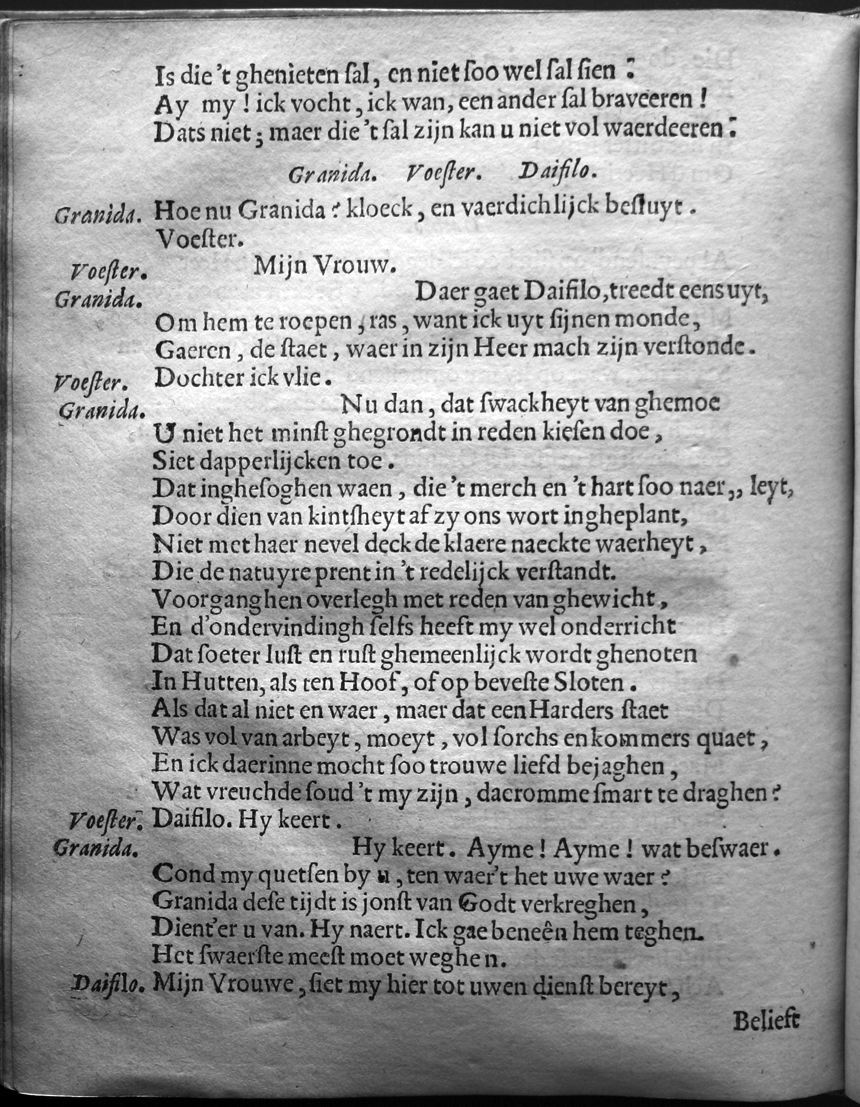 Is die 't ghenieten ſal, en niet ſoo wel ſal ſien ?
Ay my ! ick vocht, ick wan, een ander ſal braveeren !
Dats niet; maer die 't ſal zijn kan u niet vol waerdeeren :
Granida. Voeſter. Daifilo.
Granida. Hoe nu Granida ? kloeck, en vaerdichlijck beſluyt.
Voeſter.
Voeſter. Mijn Vrouw.
Granida. Daer gaet Daifilo, treedt eens uyt,
Om hem te roepen, ras, want ick uyt ſijnen monde,
Gaeren, de ſtaet, waer in zijn Heer mach zijn verſtonde.
Voeſter. Dochter ick vlie.
Granida. Nu dan, dat ſwackheyt van ghemoe
U niet het minſt ghegrondt in reden kieſen doe,
Siet dapperlijcken toe.
Dat ingheſoghen waen, die 't merch en 't hart ſoo naer,, leyt,
Door dien van kintſheyt af zy ons wort ingheplant,
Niet met haer nevel deck de klaere naeckte waerheyt,
Die de natuyre prent in 't redelijck verſtandt.
Voorganghen overlegh met reden van ghewicht,
En d'ondervindingh ſelfs heeft my wel onderricht
Dat ſoeter luſt en ruſt ghemeenlijck wordt ghenoten
In Hutten, als ten Hoof, of op beveſte Sloten.
Als dat al niet en waer, maer dat een Harders ſtaet
Was vol van arbeyt, moeyt, vol ſorchs en kommers quaet,
En ick daerinne mocht ſoo trouwe liefd bejaghen,
Wat vreuchde ſoud 't my zijn, daeromme ſmart te draghen ?
Voeſter. Daifilo. Hy keert.
Granida. Hy keert. Ayme ! Ayme ! wat beſwaer.
Cond my quetſen by u, ten waer't het uwe waer ?
Granida deſe tijdt is jonſt van Godt verkreghen,
Dient'er u van. Hy naert. Ick gae beneên hem teghen.
Het ſwaerſte meeſt moet weghen.
Daifilo. Mijn Vrouwe, ſiet my hier tot uwen dienſt bereyt,
Belieft